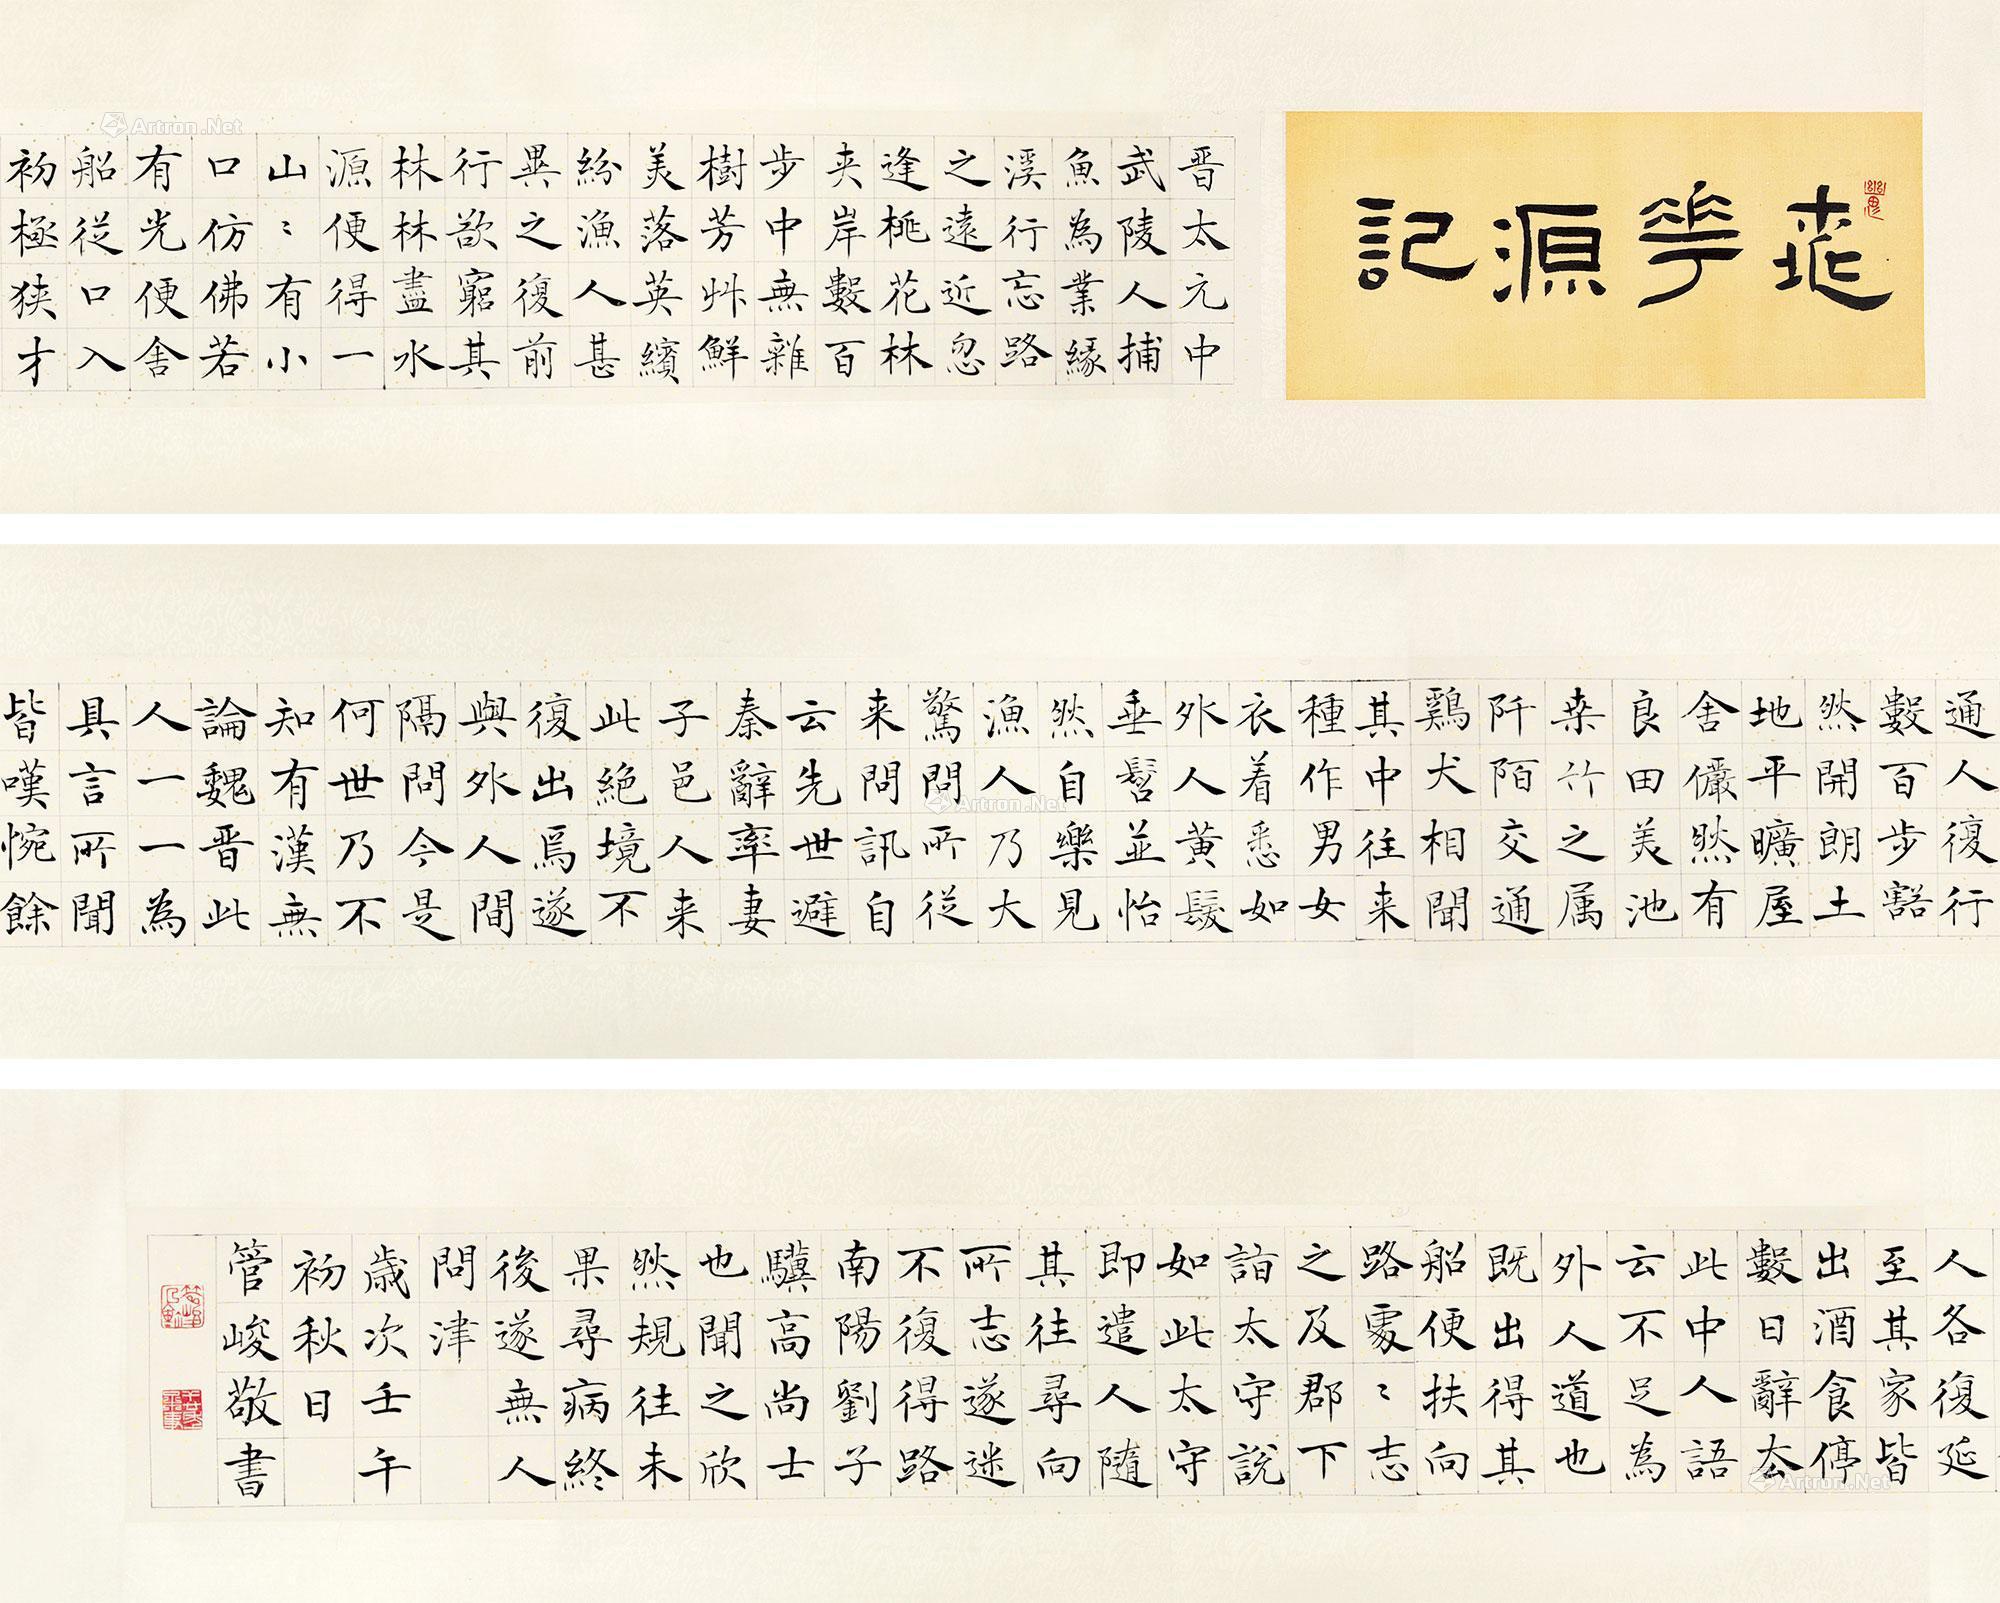 桃華源記
晋太元中
武陵人捕
魚為業緣
溪行忘路
之遠近忽
逢桃花林
夹岸數百
步中無雜
樹芳艸鮮
美落英繽
紛漁人甚
異之復前
行欲窮其
林林盡水
源便得一
山〻有小
口仿佛若
有光便舍
船從口入
初極狭才
通人復行
數百步豁
然開朗土
地平曠屋
舍儼然有
良田美池
桑竹之属
阡陌交通
鷄犬相聞
其中往来
種作男女
衣着悉如
外人黄髮
垂髫並怡
然自樂見
漁人乃大
驚問所從
来問訊自
云先世避
秦辭率妻
子邑人来
此絕境不
復出焉遂
與外人間
隔問今是
何世乃不
知有漢無
論魏晋此
人一一為
具言所聞
皆嘆惋餘
人各復延
至其家皆
出酒食停
數日辭去
此中人語
云不足為
外人道也
既出得其
船便扶向
路處〻志
之及郡下
詣太守說
如此太守
即遣人隨
其往尋向
所志遂迷
不復得路
南陽劉子
驥高尚士
也聞之欣
然規往未
果尋病終
後遂無人
問津
歲次壬午
初秋日
管峻敬書
Artron.Net
Artron.Net
Artron.Net